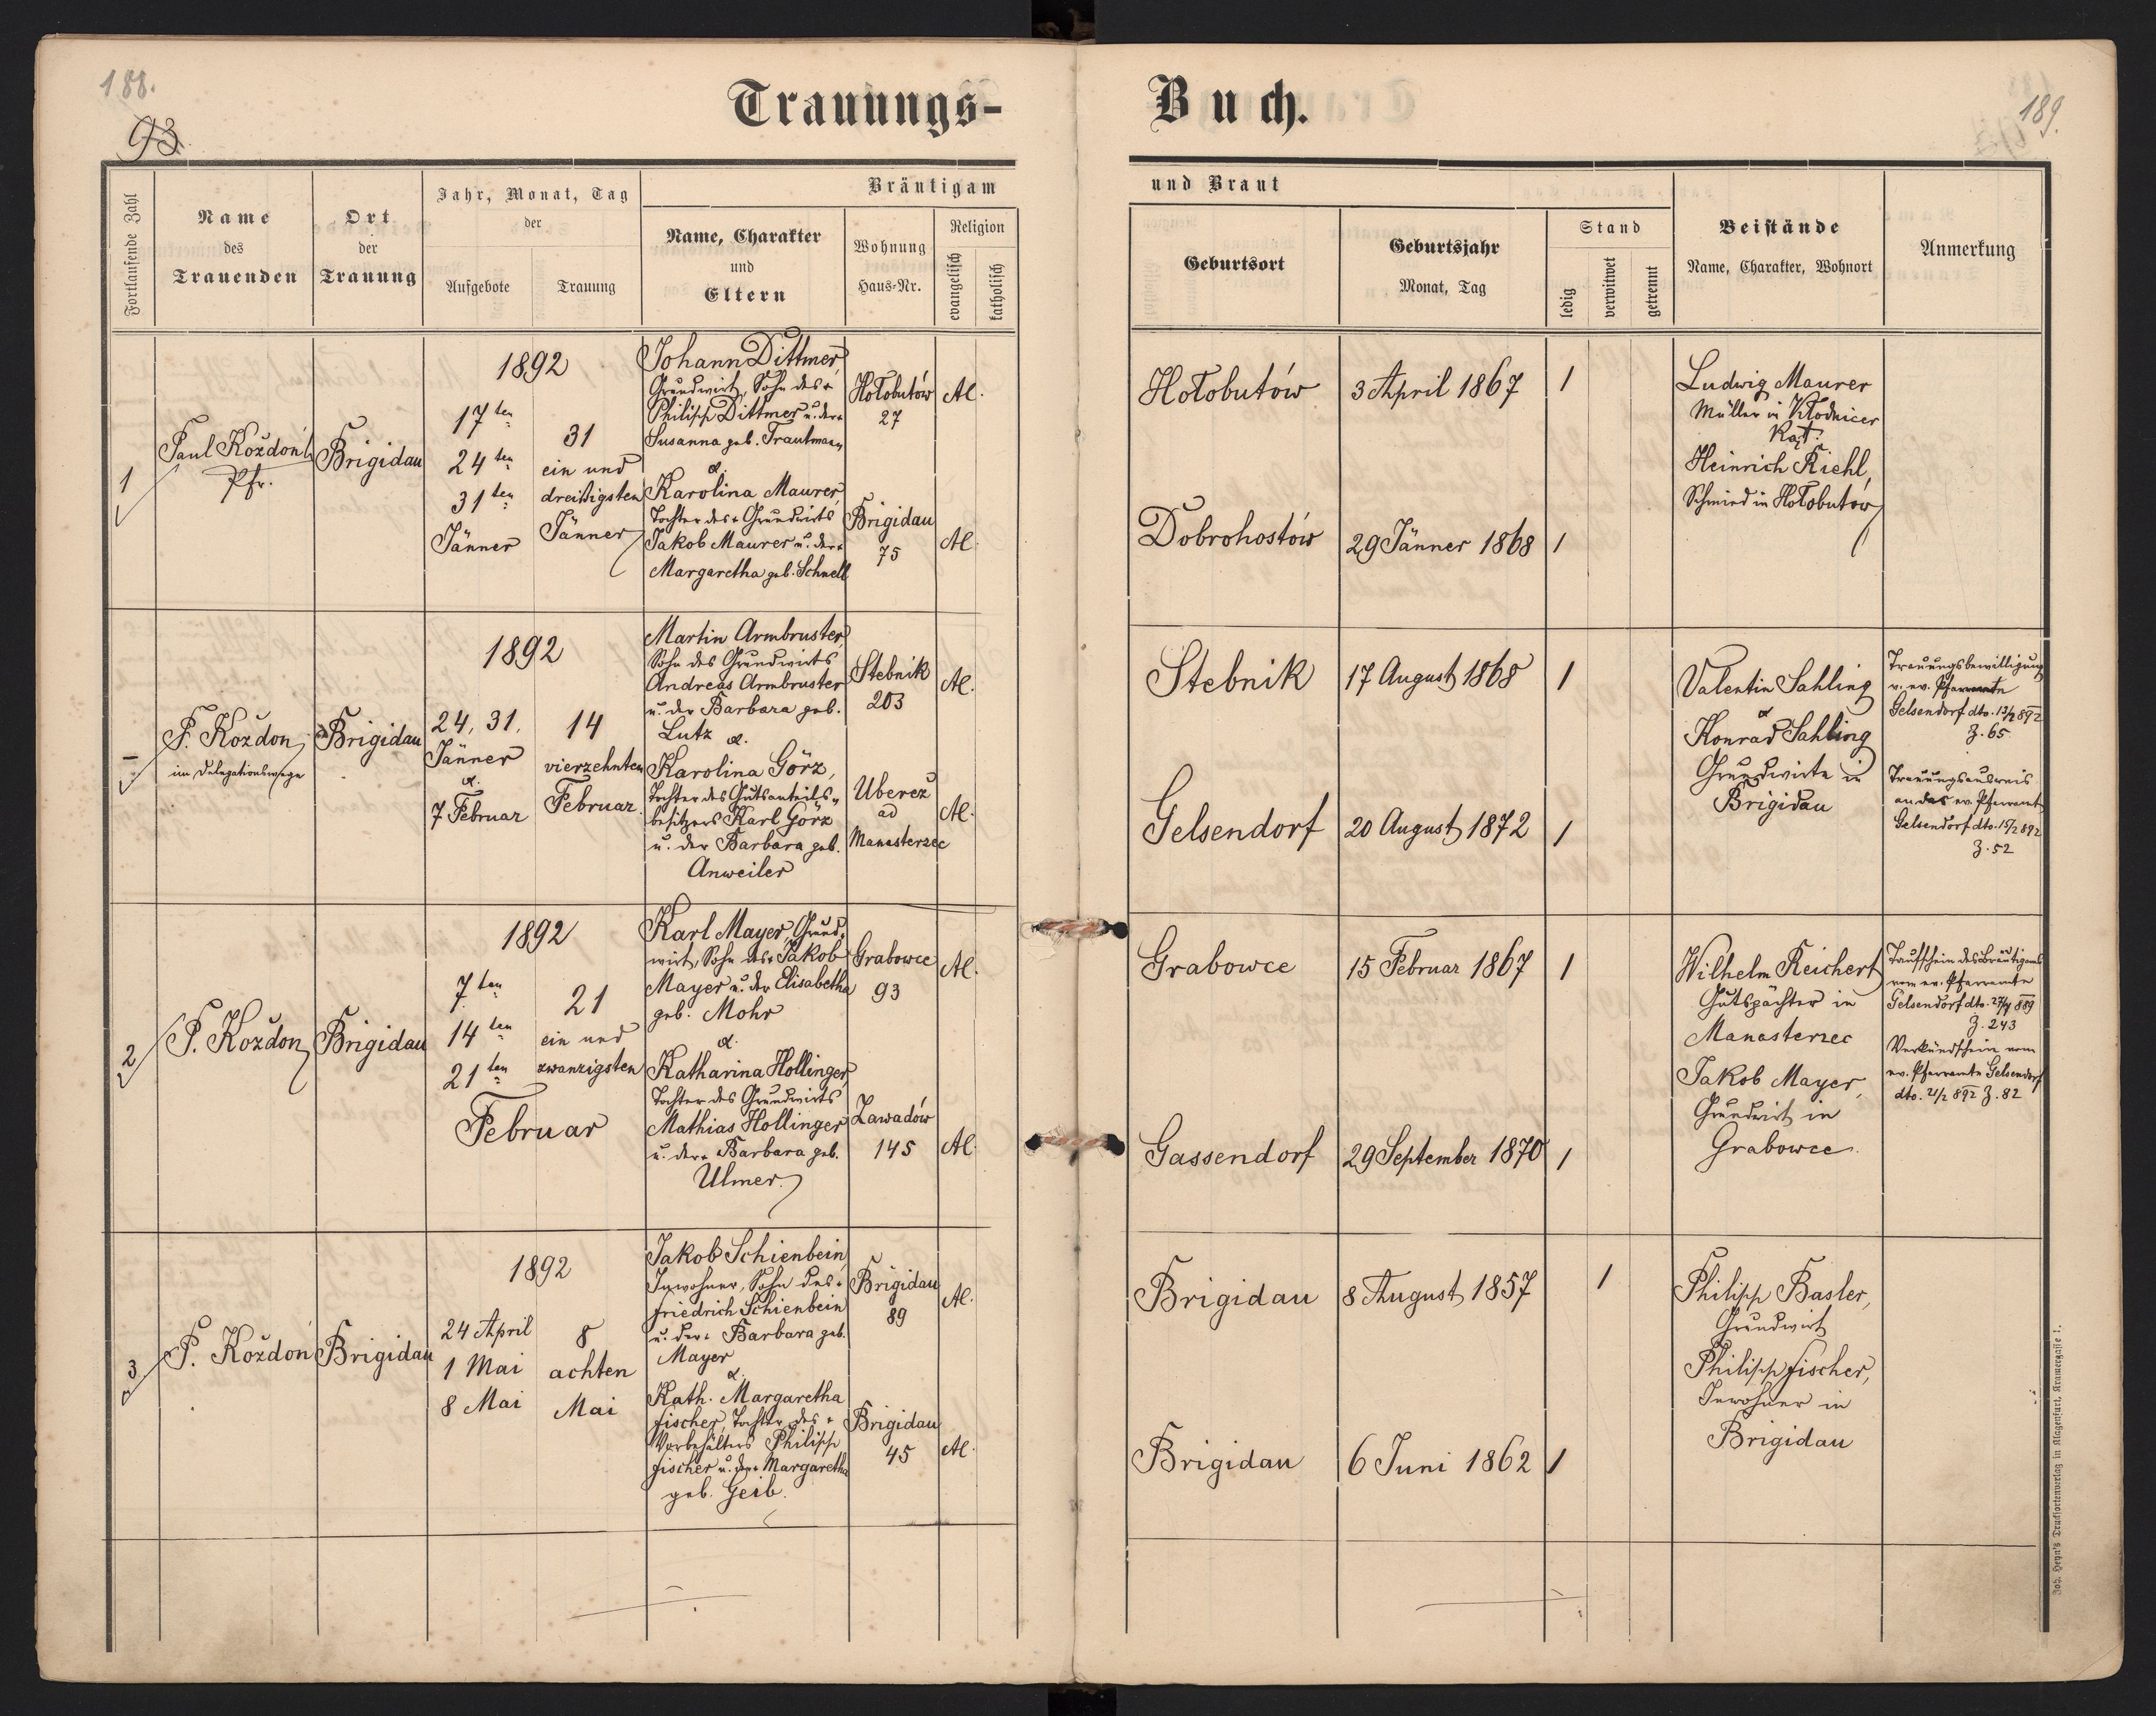 188.
93
Trauungs-
Fortlaufende Zahl
Name
des
Trauenden
Ort
der
Trauung
Jahr, Monat, Tag
der
Aufgebote
Trauung
Bräutigam
Name, Charakter
und
Eltern
Wohnung
Haus-Nr.
Religion
evangelisch
katholisch
1
Paul Kożdoń
Pfr.
Brigidau
1892
17ten
24ten
31ten
Jänner
31
ein und
dreißigsten
Jänner
Johann Dittmer,
Grundwirt, Sohn des +
Philipp Dittmer u. der +
Susanna geb. Trautmann
&.
Karolina Maurer,
Tochter des + Grundwirts
Jakob Maurer u. der +
Margaretha geb. Schnell
Hołobutów
27
Brigidau
75
Al.
Al.
P. Kożdoń
im Delegationswege
Brigidau
1892
24, 31,
Jänner
&.
7 Februar
14
vierzehnten
Februar
Martin Armbruster,
Sohn des Grundwirts
Andreas Armbruster
u. der Barbara geb.
Lutz
&.
Karolina Görz,
Tochter des Gutsanteils-
besitzers Karl Görz
u. der Barbara geb.
Anweiler
Stebnik
203
Ubereż
ad
Manasterzec
Al.
Al.
2
P. Kożdoń
Brigidau
1892
7ten
14ten
21ten
Februar
21
ein und
zwanzigsten
Karl Mayer, Grund-
wirt, Sohn des + Jakob
Mayer u. der Elisabetha
geb. Mohr
&.
Katharina Hollinger,
Tochter des Grundwirts
Mathias Hollinger
u. der + Barbara geb.
Ulmer.
Grabowce
93
Zawadów
145
Al.
Al.
3
P. Kożdoń
Brigidau
1892
24 April
1 Mai
8 Mai
8
achten
Mai
Jakob Schienbein,
Inwohner, Sohn des +
Friedrich Schienbein
u. der + Barbara geb.
Mayer
&.
Kath. Margaretha
Fischer, Tochter des +
Vorbehälters Philipp
Fischer u. der + Margaretha
geb. Geib.
Brigidau
89
Brigidau
45
Al.
Al.
Buch.
189.
und Braut
Geburtsort
Geburtsjahr
Monat, Tag
Stand
ledig
verwitwet
getrennt
Beistände
Name, Charakter, Wohnort
Anmerkung
Hołobutów
3 April 1867
1
Dobrohostów
29 Jänner 1868
1
Ludwig Maurer
Müller in Kłodnicer
Kat.
Heinrich Riehl,
Schmied in Hołobutów
Stebnik
17 August 1868
1
Gelsendorf
20 August 1872
1
Valentin Sahling
&
Konrad Sahling
Grundwirte in
Brigidau
Trauungsbewilligung
v. ev. Pfarramte
Gelsendorf dto. 13/2 892
Z. 65
Trauungsausweis
an das ev. Pfarramt
Gelsendorf dto. 15/2 892
Z. 52
Grabowce
15 Februar 1867
1
Gassendorf
29 September 1870
1
Wilhelm Reichert
Gutspächter in
Manasterzec
Jakob Mayer,
Grundwirt in
Grabowce.
Taufschein des Bräutigams
vom ev. Pfarramte
Gelsendorf dto. 889
Z. 243
Verkündschein vom
ev. Pfarramte Gelsendorf
dto. 21/2 892 Z. 82
Brigidau
8 August 1857
1
Brigidau
6 Juni 1862
1
Philipp Basler,
Grundwirt
Philipp Fischer,
Inwohner in
Brigidau
Joh. Heyn's Drucksortenverlag in Klagenfurt, Kramergasse 1.